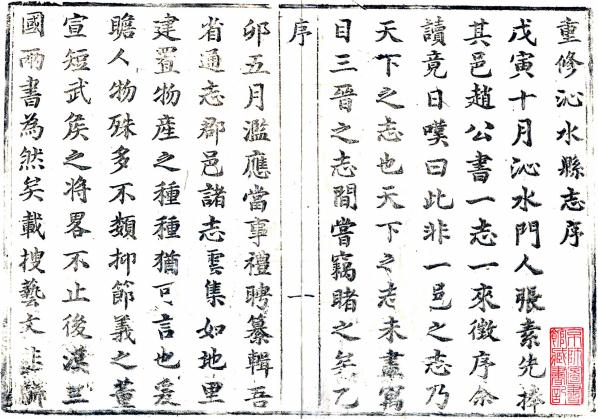 重修沁水縣志序
戊寅十月沁水門人張素先捧
其邑趙公書一志一來徵序余
讀竟日嘆曰此非一邑之志乃
天下之志也天下之志未盡寓
目三晉之志間嘗竊睹之矣乙
序
一
卯五月濫應當事禮聘纂輯吾
省通志郡邑諸志雲集如地里
建置物產之種種猶可言也爰
瞻人物殊多不類抑節義之董
宣短武矦之將畧不止後漢三
國兩書為然矣載搜藝文
京師圖書
館藏書記